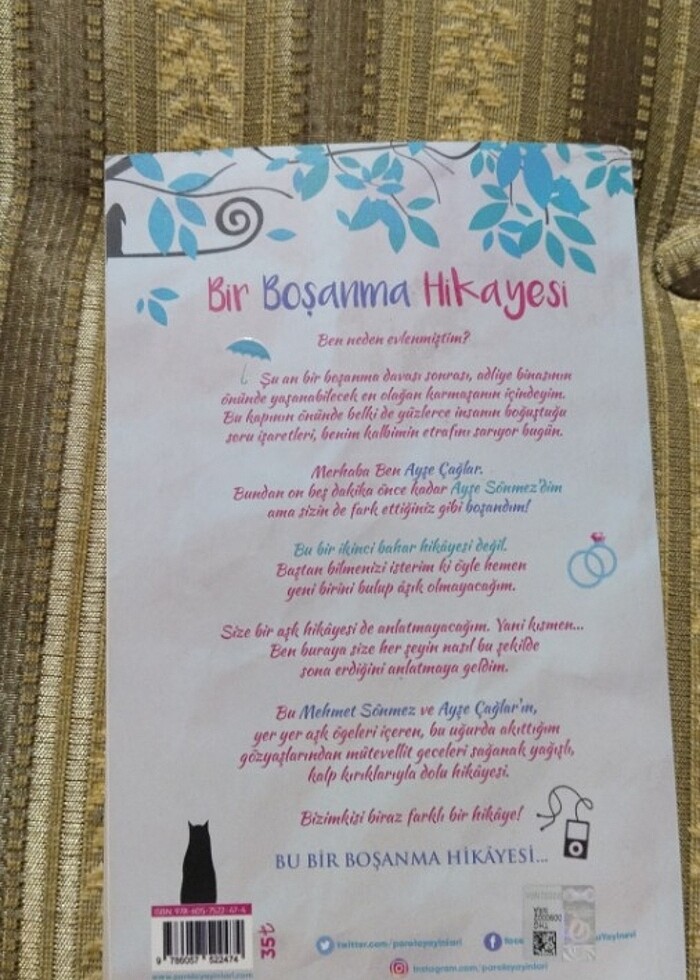 Bir Boşanma Hikayesi
Ben neden evlenmiştim?
Şu an bir boşanma davası sonrası, adliye binasının
önünde yaşanabilecek en olağan karmaşanın içindeyim.
Bu kapının önünde belki de yüzlerce insanın boğuştuğu
soru işaretleri, benim kalbimin etrafını sarıyor bugün.
Merhaba Ben Ayşe Çağlar.
Bundan on beş dakika önce kadar Ayşe Sönmez'dim
ama sizin de fark ettiğiniz gibi boşandım!
Bu bir ikinci bahar hikâyesi değil.
Baştan bilmenizi isterim ki öyle hemen
yeni birini bulup âşık olmayacağım.
Size bir aşk hikâyesi de anlatmayacağım. Yani kısmen...
Ben buraya size her şeyin nasıl bu şekilde
sona erdiğini anlatmaya geldim.
Bu Mehmet Sönmez ve Ayşe Çağlar'ın,
yer yer aşk ögeleri içeren, bu uğurda akıttığım
gözyaşlarından mütevellit geceleri sağanak yağışlı,
kalp kırıklarıyla dolu hikâyesi.
Bizimkisi biraz farklı bir hikâye!
BU BİR BOŞANMA HİKÂYESİ...
ISBN: 978-605-7522-47-4
9 786057 522474
35₺
twitter.com/parolayayinlari
instagram.com/parolayayinlari